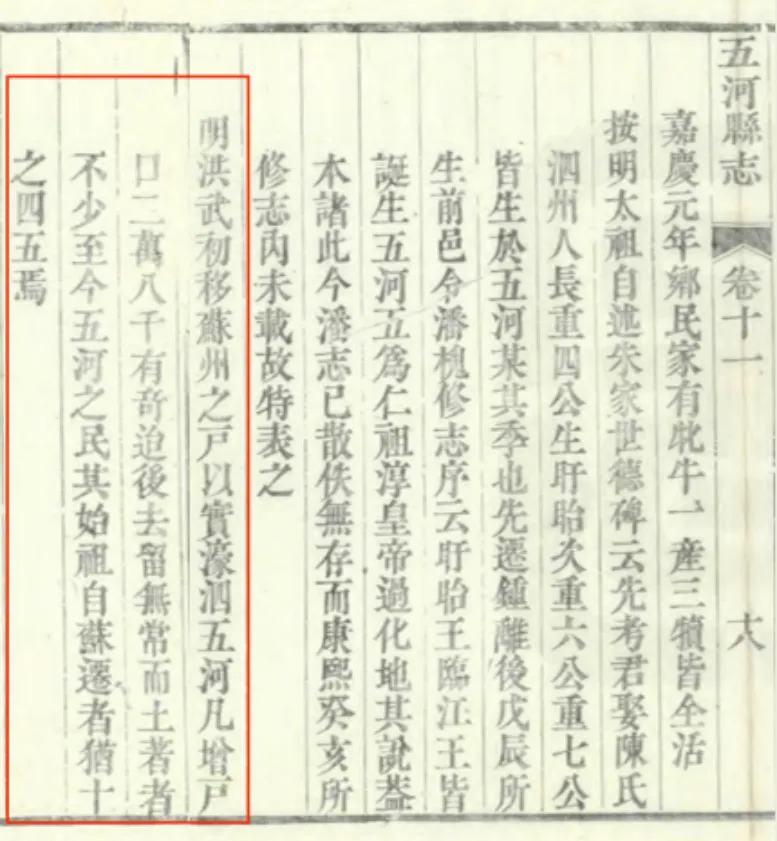 五河縣志
卷十一
十八
嘉慶元年鄉民家有牝牛一產三犢皆全活
按明太祖自述朱家世德碑云先考君娶陳氏
泗州人長重四公生盱眙次重六公重七公
皆生於五河某其季也先遷鍾離後戊辰所
生前邑令潘槐修志序云盱眙王臨江王皆
誕生五河五為仁祖淳皇帝過化地其說蓋
本諸此今潘志已散佚無存而康熙癸亥所
修志內未載故特表之
明洪武初移蘇州之戸以實濠泗五河凡增戸
口二萬八千有奇迨後去留無常而土著者
不少至今五河之民其始祖自蘇遷者猶十
之四五焉